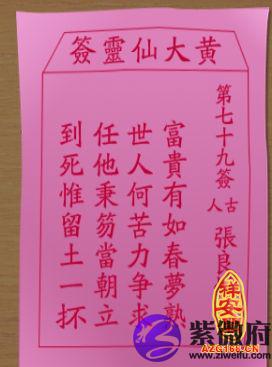 黄大仙靈簽
第七十九簽
古人
張良
富貴有如春夢熟
世人何苦力争求
任他秉笏當朝立
到死惟留土一抔
祥安
AZG168.COM
紫微府
www.ziweifu.com